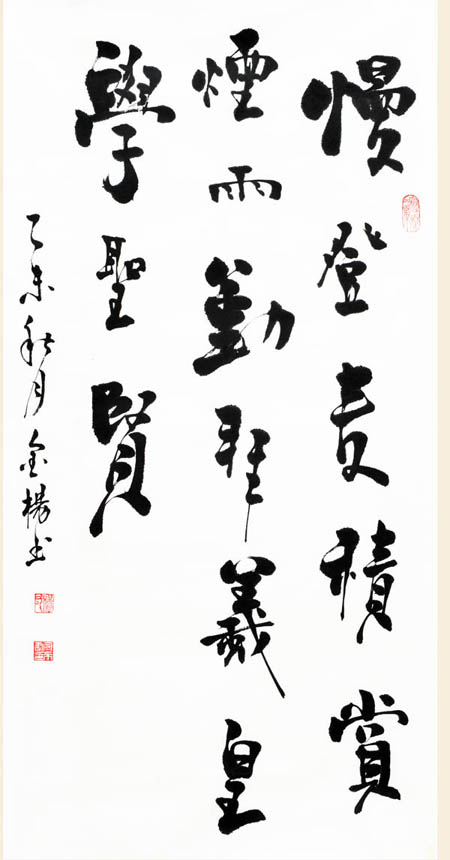 慢登麦積賞
煙雨勤拜羲皇
學聖賢
乙未秋月金楊书